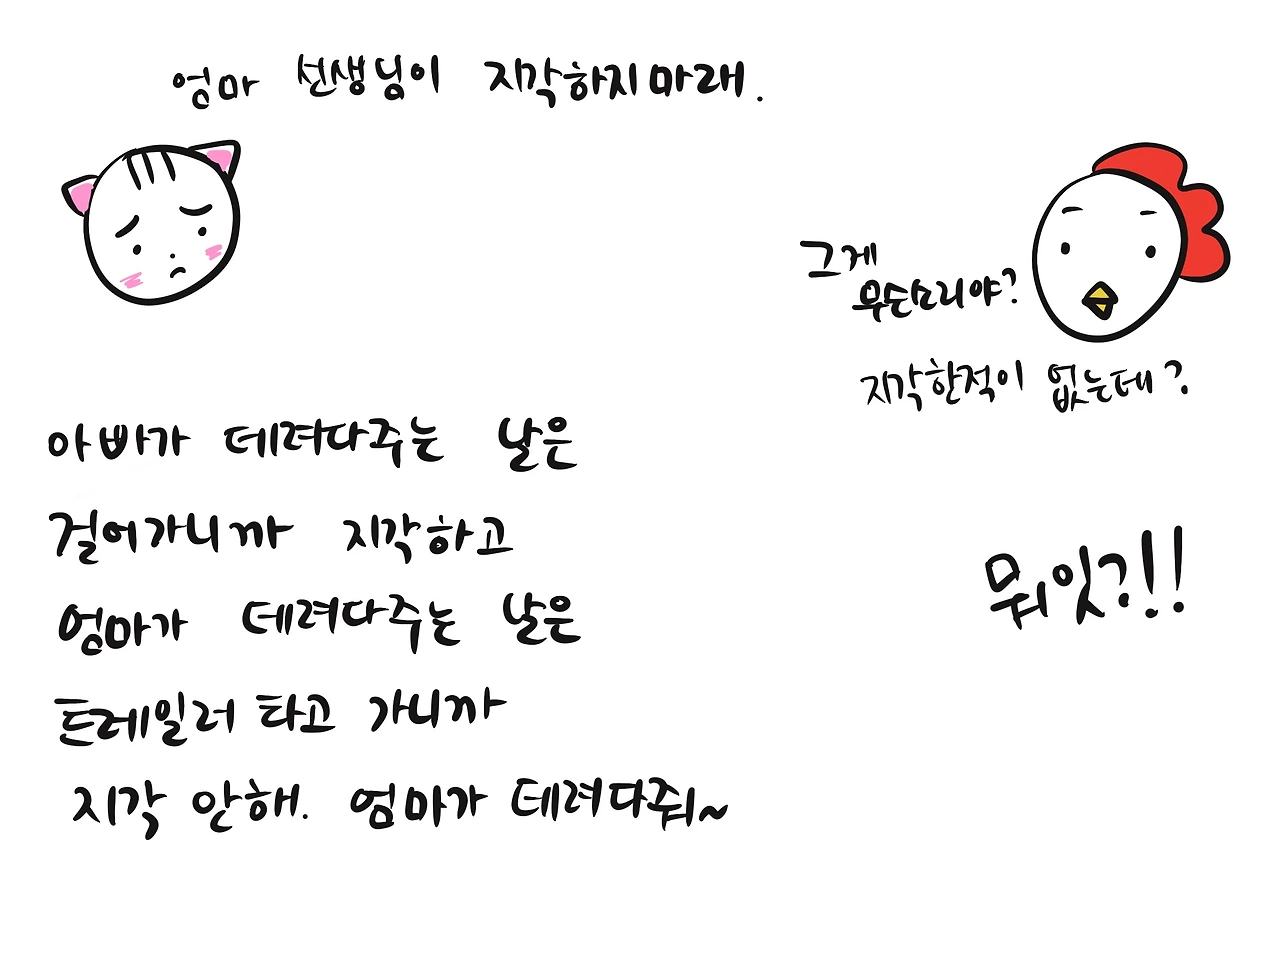 엄마 선생님이 지각하지마래.
그게
무슨소리야?
지각한적이 없는데?
아빠가 데려다주는 날은
걸어가니까 지각하고
엄마가 데려다주는 날은
트레일러 타고 가니까
지각 안해. 엄마가 데려다줘~
뭐잇?!!